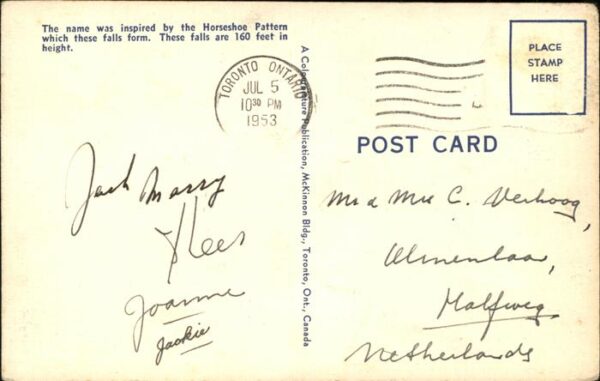 The name was inspired by the Horseshoe Pattern
which these falls form. These falls are 160 feet in
height.
TORONTO ONTARIO
JUL 5
10 30 PM
1953
PLACE
STAMP
HERE
POST CARD
A Colourpicture Publication, McKinnon Bldg., Toronto, Ont., Canada
Jack Marry
Kees
Joanne
Jackie
Mr & Mrs C. Verhoog,
Olmenlaan,
Halfweg.
Netherlands